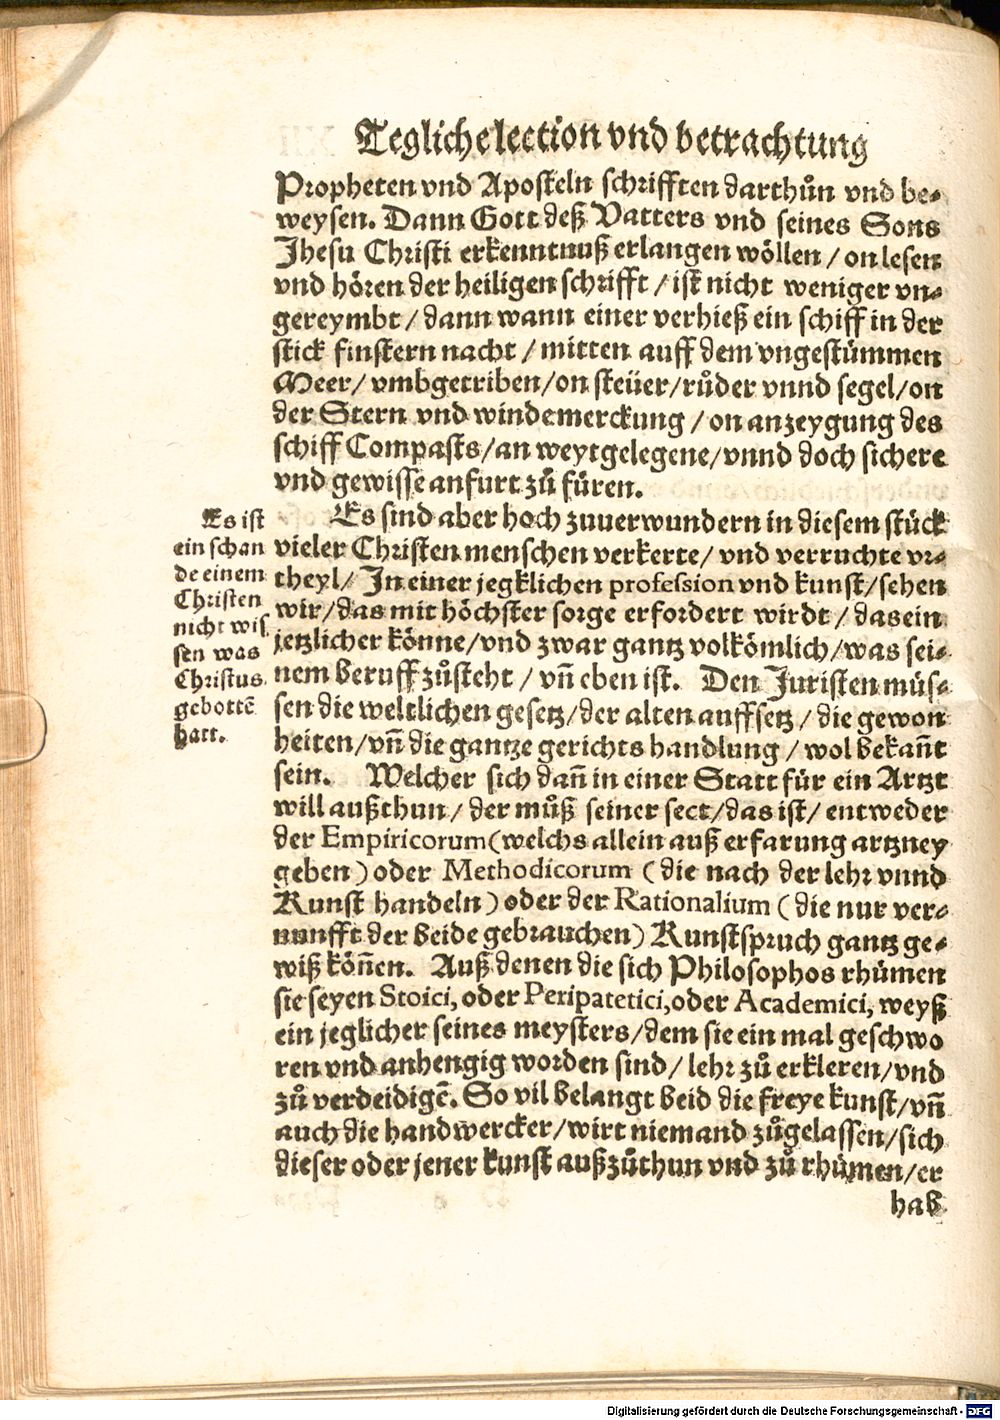 Tegliche lection vnd betrachtung
Propheten vnd Aposteln schrifften darthůn vnd be-
weysen. Dann Gott deß Vatters vnd seines Sons
Jhesu Christi erkenntnuß erlangen wöllen / on lesen
vnd hören der heiligen schrifft / ist nicht weniger vn-
gereymbt / dann wann einer verhieß ein schiff in der
stick finstern nacht / mitten auff dem vngestümmen
Meer / vmbgetriben / on steüer / růder vnnd segel / on
der Stern vnd windemerckung / on anzeygung des
schiff Compasts / an weytgelegene / vnnd doch sichere
vnd gewisse anfurt zů füren.
Es sind aber hoch zuuerwundern in diesem stück
vieler Christen menschen verkerte / vnd verruchte vr-
theyl / In einer jegklichen profession vnd kunst / sehen
wir / das mit höchster sorge erfordert wirdt / das ein
jetzlicher könne / vnd zwar gantz volkömlich / was sei-
nem beruff zůsteht / vn̄ eben ist. Den Juristen müs-
sen die weltlichen gesetz / der alten auffsetz / die gewon
heiten / vn̄ die gantze gerichts handlung / wol bekan̄t
sein. Welcher sich dan̄ in einer Statt für ein Artzt
will außthun / der můß seiner sect / das ist / entweder
der Empiricorum (welchs allein auß erfarung artzney
geben) oder Methodicorum (die nach der lehr vnnd
Kunst handeln) oder der Rationalium (die nur ver-
nunfft der beide gebrauchen) Kunstspruch gantz ge-
wiß kön̄en. Auß denen die sich Philosophos rhümen
sie seyen Stoici, oder Peripatetici, oder Academici, weyß
ein jeglicher seines meysters / dem sie ein mal geschwo
ren vnd anhengig worden sind / lehr zů erkleren / vnd
zů verdeidigē. So vil belangt beid die freye kunst / vn̄
auch die handwercker / wirt niemand zůgelassen / sich
dieser oder jener kunst außzůthun vnd zů rhümen / er
hab
Es ist
ein schan
de einem
Christen
nicht wis
sen was
Christus
gebottē
hatt.
Digitalisierung gefördert durch die Deutsche Forschungsgemeinschaft - DFG